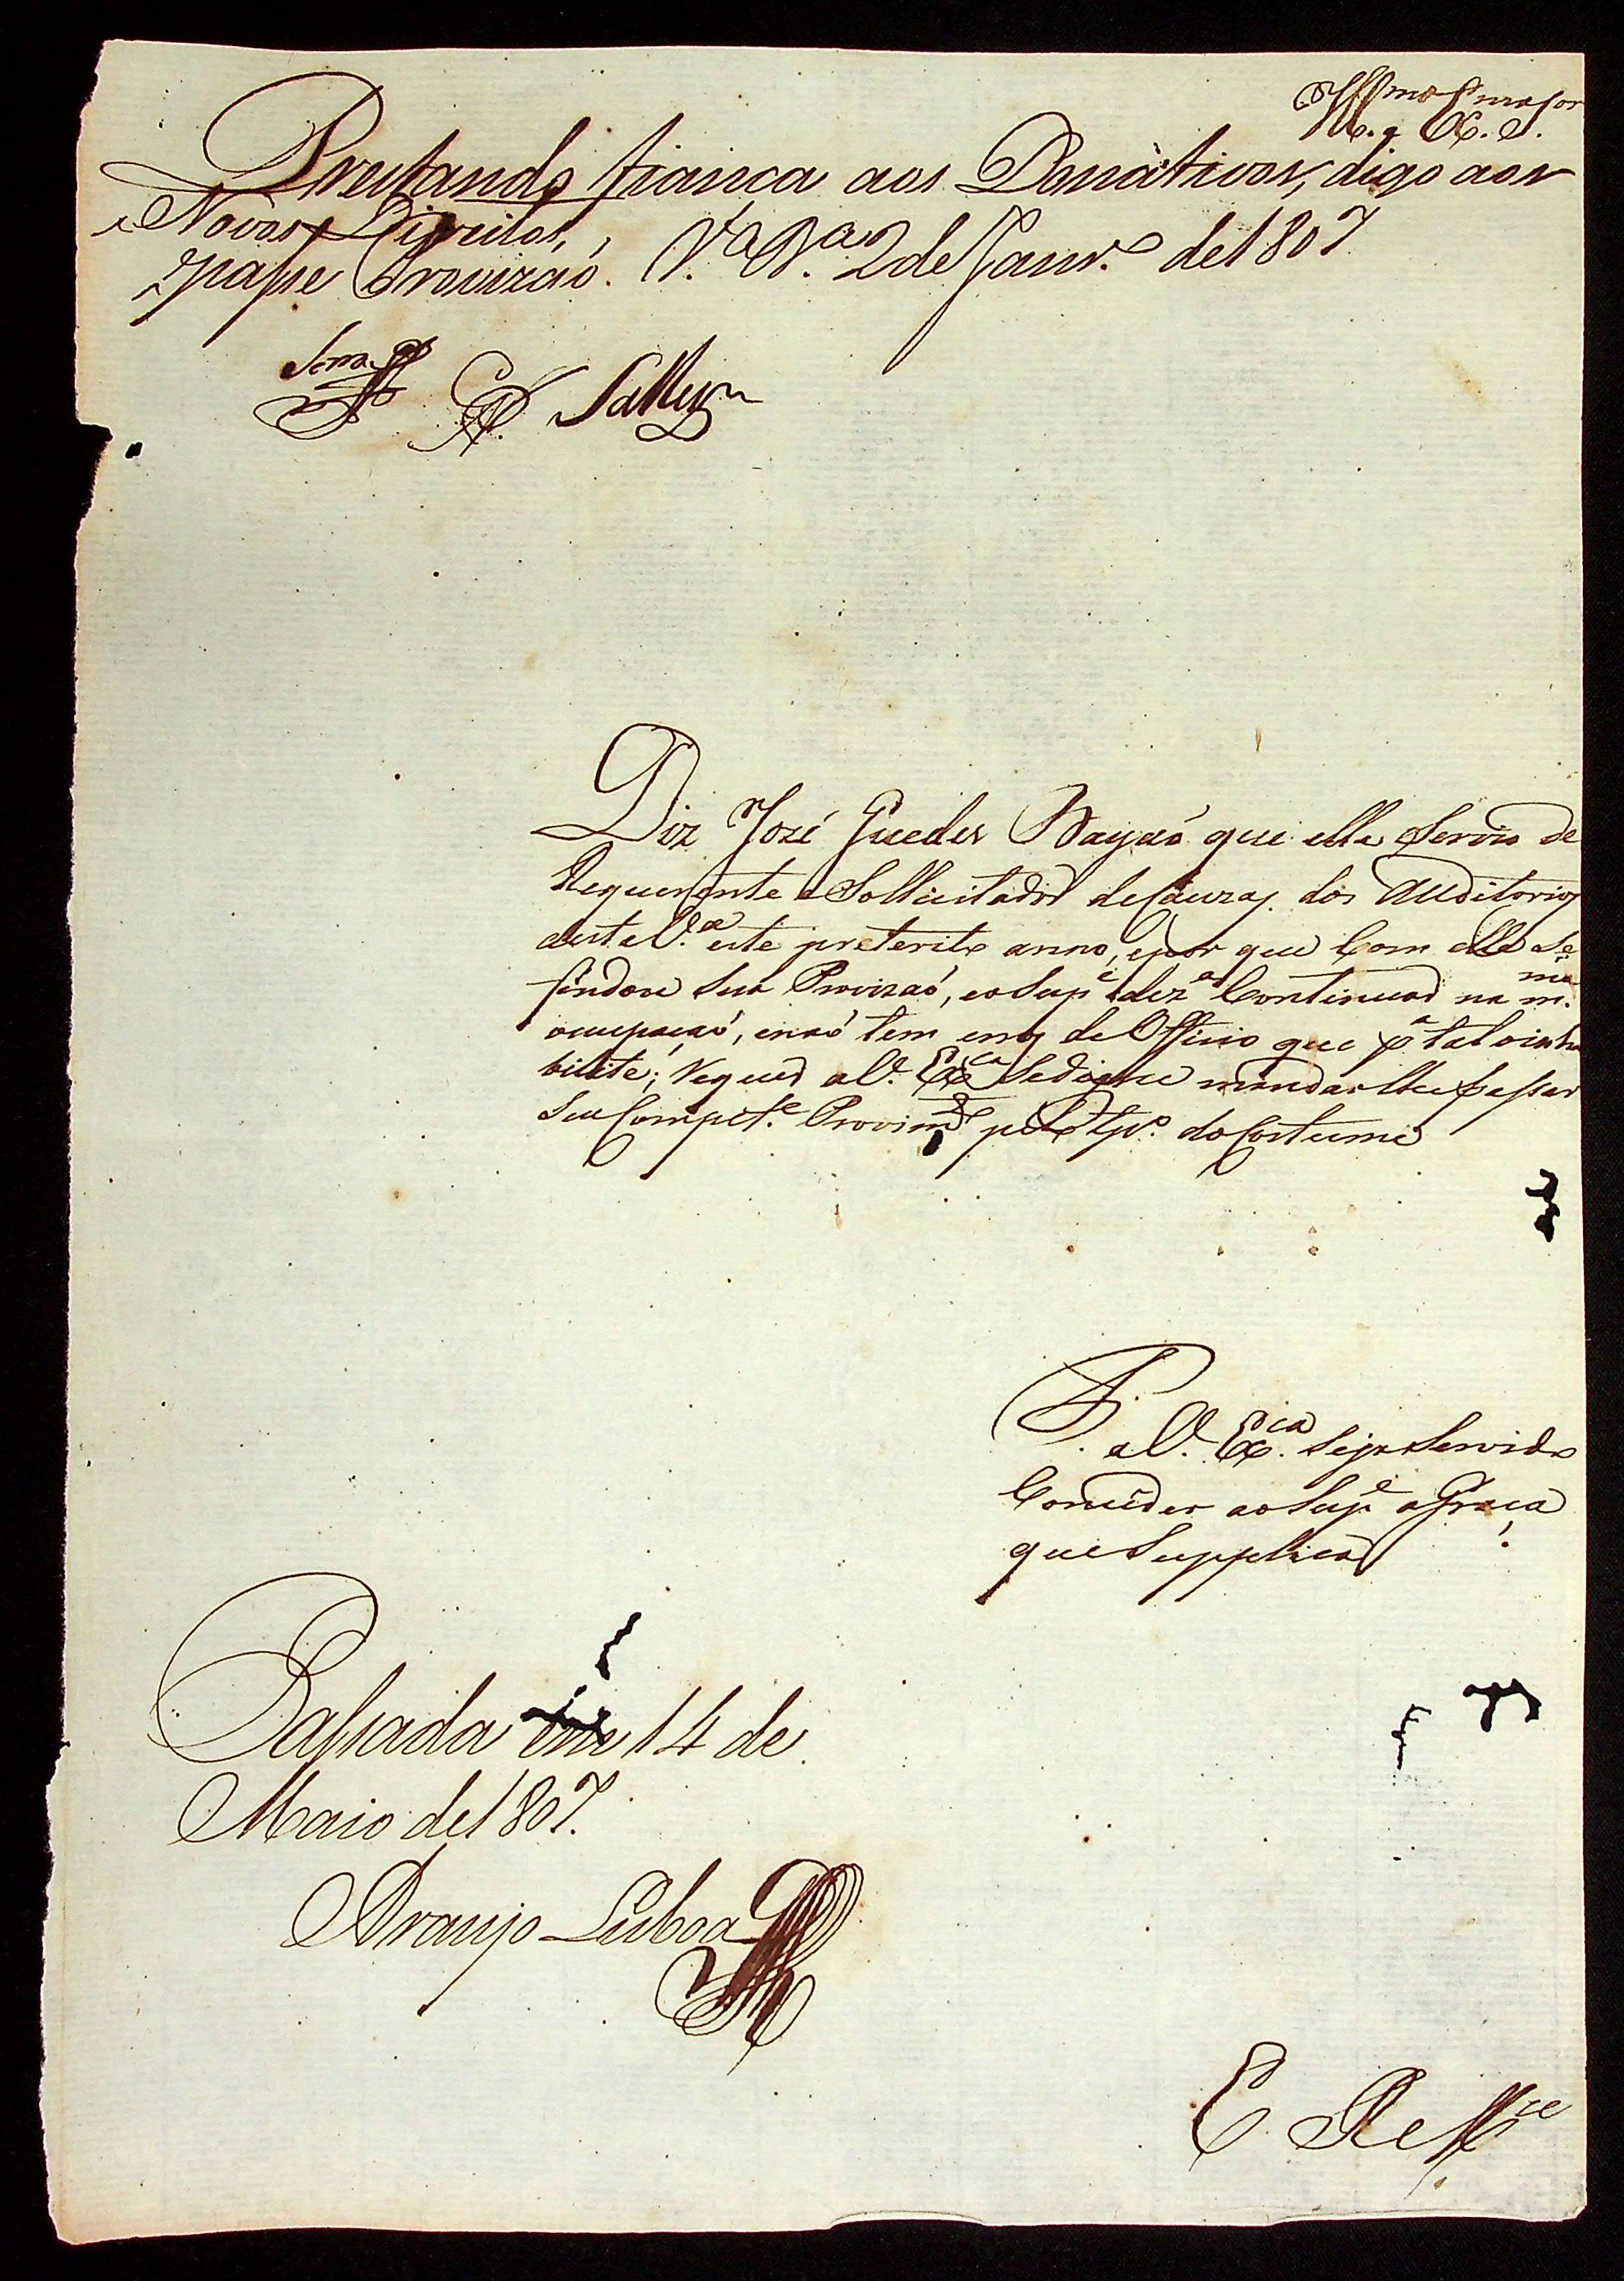 Ill.mo S.r
M. e Ex. S.
Prestando fiança aos Donativos, digo aos
Novos Direitos,
se passe Provizaó. V.a B.a 2 de Janr.o de 1807
Salles
Diz Jozé Guedes Bayaó que elle Servio de
Requerente e Sollicitador de Cauzas dos Auditorios
desta V.a este preterito anno, e por que Com elle Se
findou Sua Provizaó, e o Sup.e dez.a Continuar na m.ma
ocupaçaó, e naó tem erros de Officio que p.a tal o inha
bilite; requer a V. Ex.cia Se digne mandar lhe passar
Seu Compet.e Provim.to pelo tp.o do Costume
P.
a V. Ex.cia Seja Servido
Conceder ao Sup.e a Graça
que Supplica
Passada em 14 de
Maio de 1807.
Araujo Lisboa
E. R. M.ce